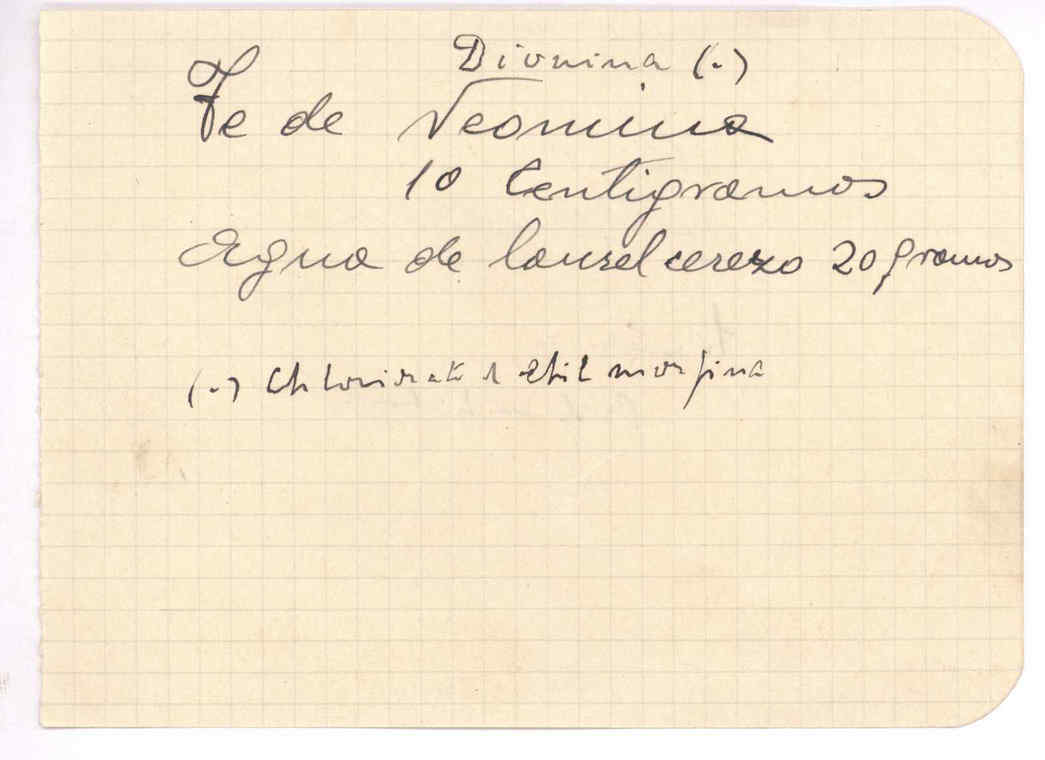 Dionina (.)
Te de Neomina
10 Centigramos
Agua de laurel cerezo 20 gramos
(.) Chloridrato d etil morfina